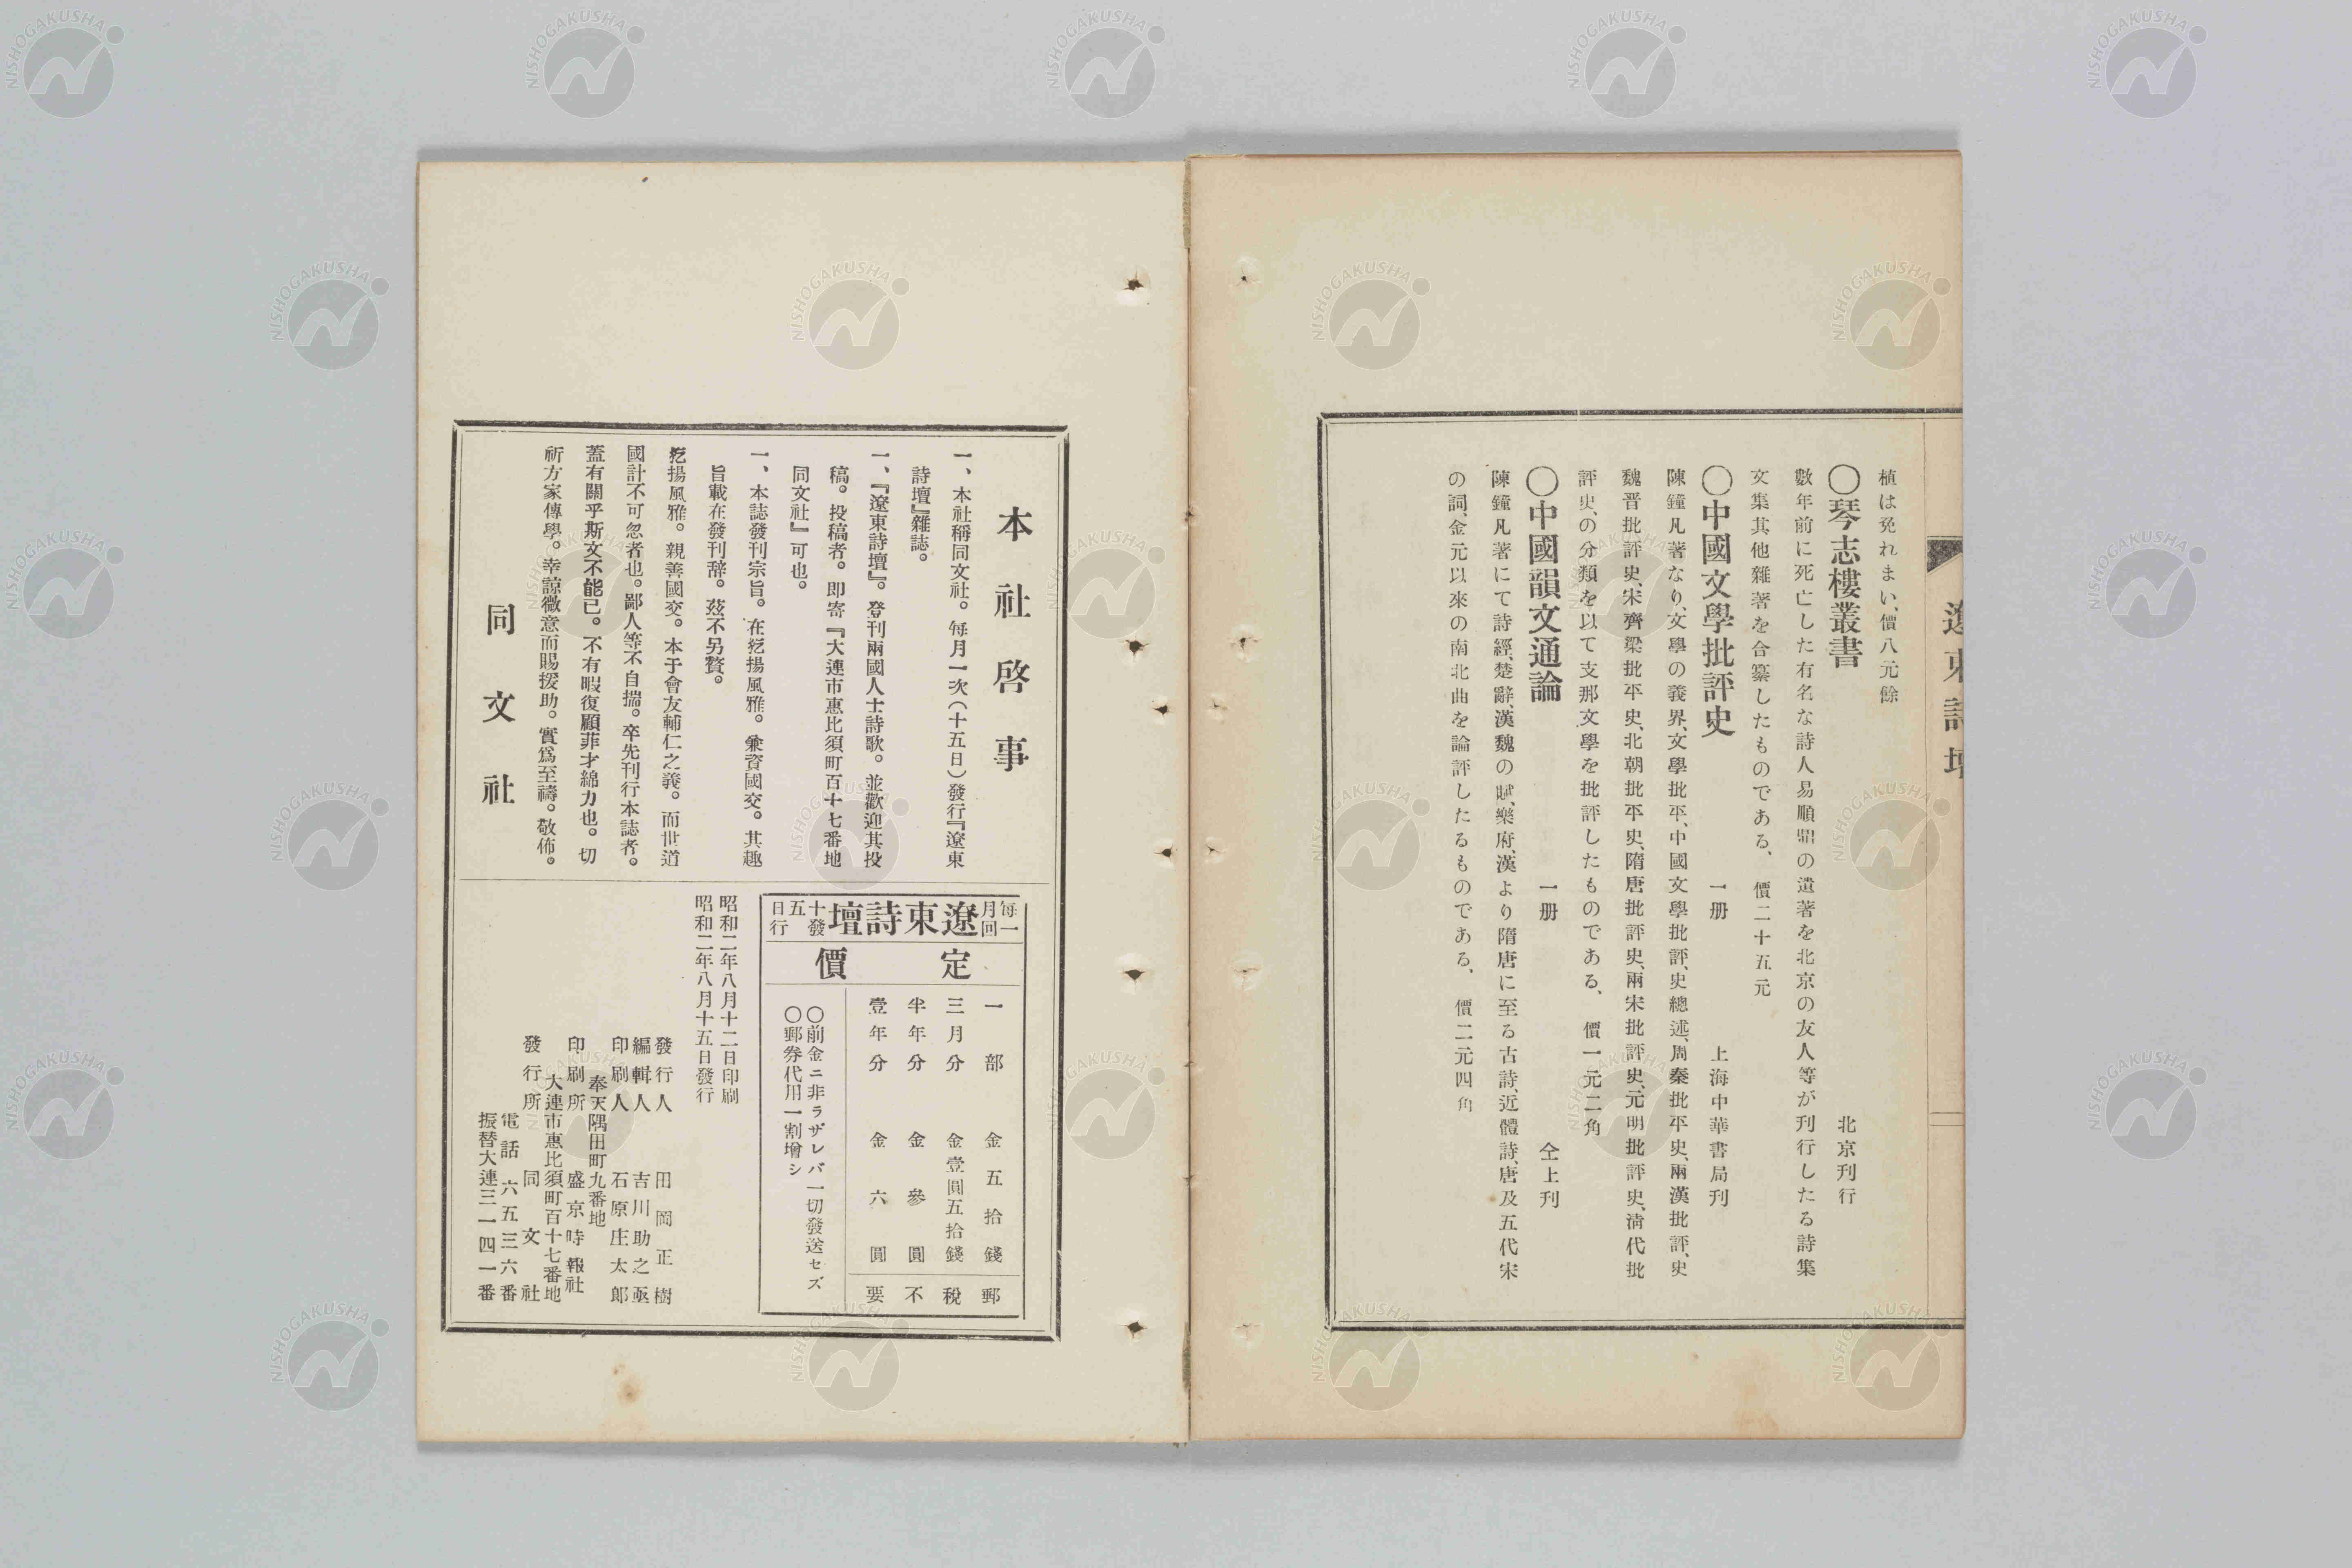 遼東詩壇
植は免れまい、價八元餘
〇琴志樓叢書　北京刊行
數年前に死亡した有名な詩人易順鼎の遺著を北京の友人等が刊行したる詩集
文集其他雜著を合纂したものである、價二十五元
〇中國文學批評史　一册　上海中華書局刊
陳鐘凡著なり、文學の義界、文學批平、中國文學批評、史總述、周秦批平史、兩漢批評、史
魏晋批評史、宋齊梁批平史、北朝批平史、隋唐批評史、兩宋批評史、元明批評史、淸代批
評史、の分類を以て支那文學を批評したものである、價一元二角
〇中國韻文通論　一册　仝上刊
陳鐘凡著にて詩經、楚辭、漢魏の賦、樂府、漢より隋唐に至る古詩、近體詩、唐及五代宋
の詞、金元以來の南北曲を論評したるものである、價二元四角
本社啓事
一、本社稱同文社。每月一次（十五日）發行『遼東
詩壇』雜誌。
一、『遼東詩壇』。登刊兩國人士詩歌。並歡迎其投
稿。投稿者。即寄『大連市惠比須町百十七番地
同文社』可也。
一、本誌發刊宗旨。在挖揚風雅。兼資國交。其趣
旨載在發刊辞。茲不另贅。
挖揚風雅。親善國交。本于會友輔仁之義。而世道
國計不可忽者也。鄙人等不自揣。卒先刊行本誌者。
蓋有關乎斯文不能已。不有暇復顧菲才綿力也。切
祈方家傳學。幸諒微意而賜援助。實爲至禱。敬佈。
同文社
每月一回 遼東詩壇 十五日發行
定價
一部　金五拾錢
三月分　金壹圓五拾錢
半年分　金參圓
壹年分　金六圓
郵稅不要
〇前金ニ非ラザレバ一切發送セズ
〇郵券代用一割增シ
昭和二年八月十二日印刷
昭和二年八月十五日發行
發行人　田岡正樹
編輯人　吉川助之亟
印刷人　石原庄太郎
奉天隅田町九番地
印刷所　盛京時報社
大連市惠比須町百十七番地
發行所　同文社
電話六五三六番
振替大連三一四一番
NISHOGAKUSHA